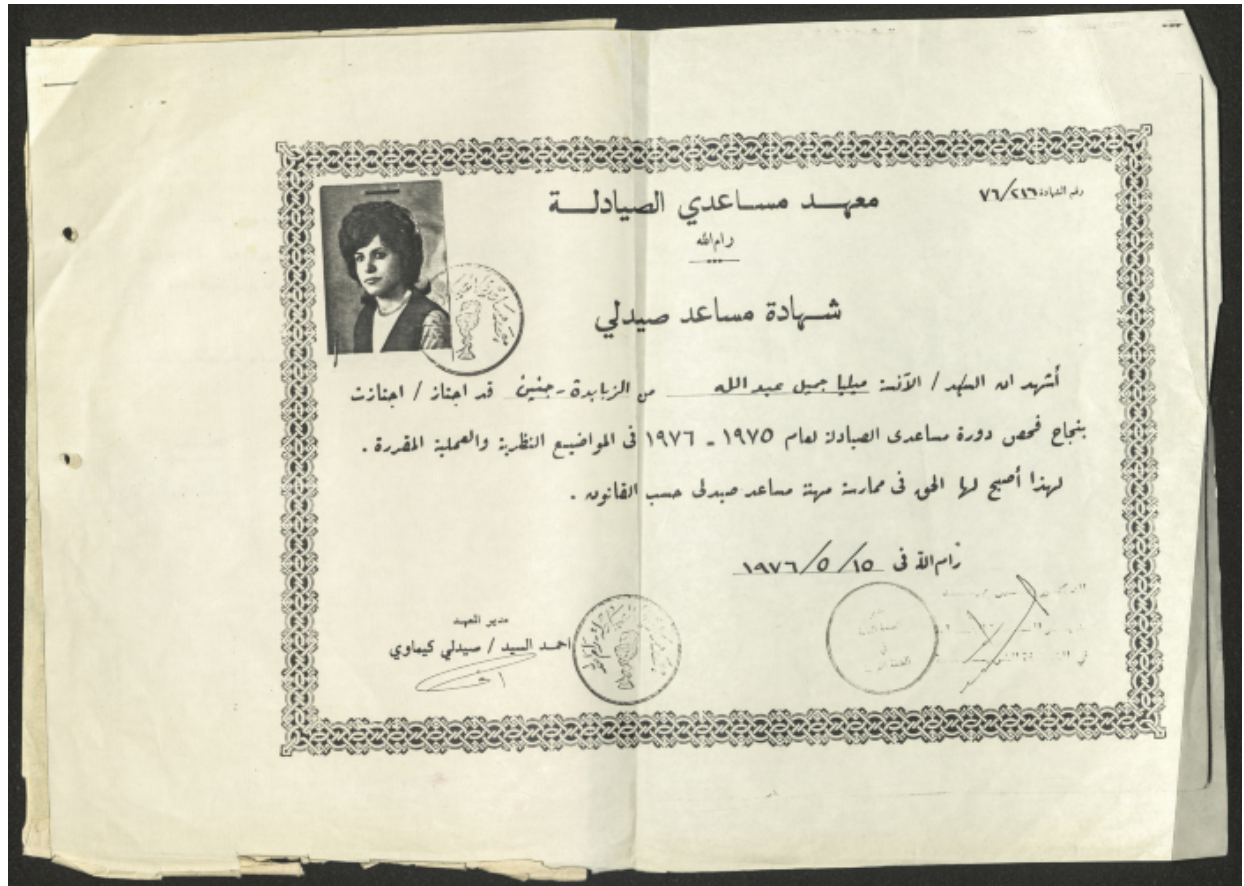 رقم الشهادة ٧٦/٢١٦
معهد مساعدي الصيادلة
رام الله
شهادة مساعد صيدلي
أشهد ان السيد / الآنسة ميليا جميل عبد الله من الزبابدة - جنين قد اجتاز / اجتازت
بنجاح فحص دورة مساعدى الصيادلة لعام ١٩٧٥ - ١٩٧٦ فى المواضيع النظرية والعملية المقررة .
لهذا أصبح لها الحق فى ممارسة مهنة مساعد صيدلى حسب القانون .
رام الله فى ١٥/٥/١٩٧٦
مدير المعهد
احمد السيد / صيدلي كيماوي